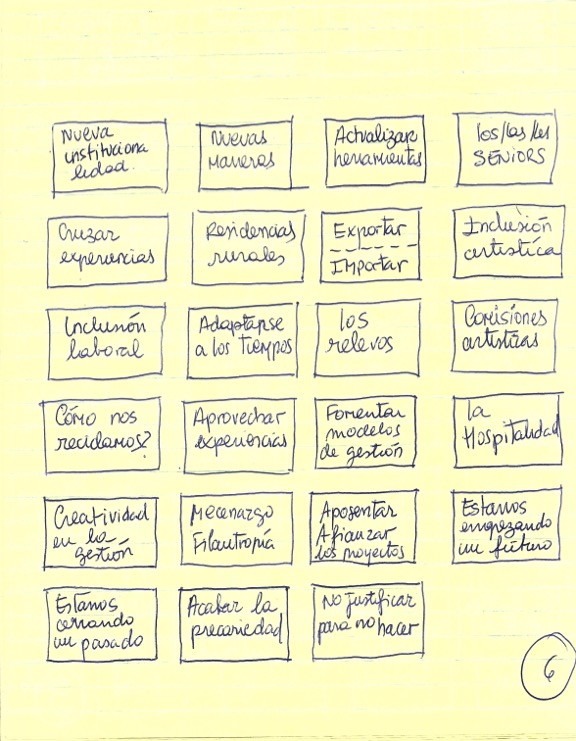 Nueva
instituciona
lidad.
Nuevas
Maneras
Actualizar
herramientas
los/las/les
SENIORS
Cruzar
experiencias
Residencias
rurales
Exportar
Importar
Inclusión
artística
Inclusión
laboral
Adaptarse
a los Tiempos
los
relevos
Comisiones
artísticas
Cómo nos
reciclamos?
Aprovechar
experiencias
Fomentar
modelos
de gestión
la
Hospitalidad
Creatividad
en la
gestión
Mecenazgo
Filantropía
Aposentar
Afianzar
los proyectos
Estamos
empezando
un futuro
Estamos
cerrando
un pasado
Acabar la
precariedad
No Justificar
para no hacer
6